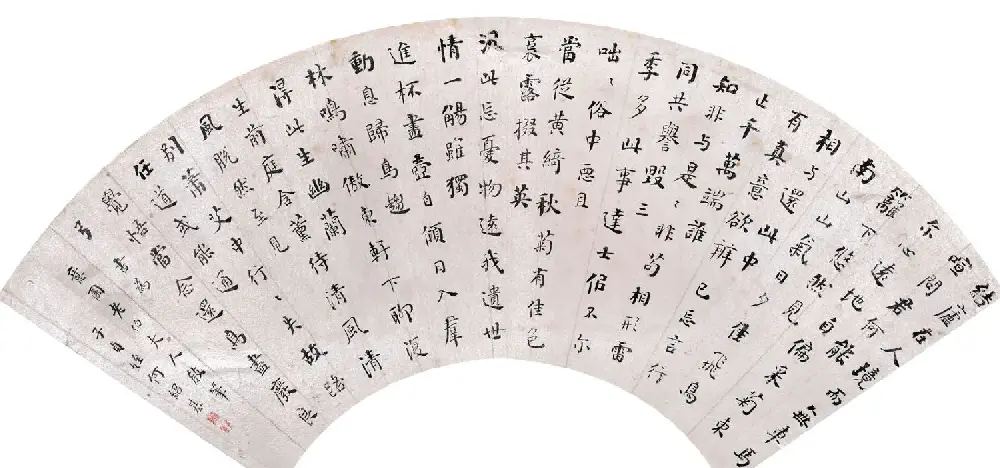 结廬在人境而無車馬
喧問君何能
尔心遠地自偏采菊東
籬下悠然見
南山山氣日夕佳飛鳥
相与還此中
有真意欲辨已忘言行
止千萬端誰
知非与是是非苟相形雷
同共譽毀三
季多此事達士佀不尔
咄〻俗中惡且
當從黄綺 秋菊有佳色
裛露掇其英
汎此忘憂物遠我遺世
情一觴雖獨
進杯盡壺自傾日入羣
動息歸鳥趨
林鳴嘯傲東軒下聊復
得此生 幽蘭
生前庭含薰待清風清
風脱然至見
別蕭艾中行〻失故路
任道或能通
覺悟當念還鳥盡廢良
弓 書為
老伯大人
何紹基